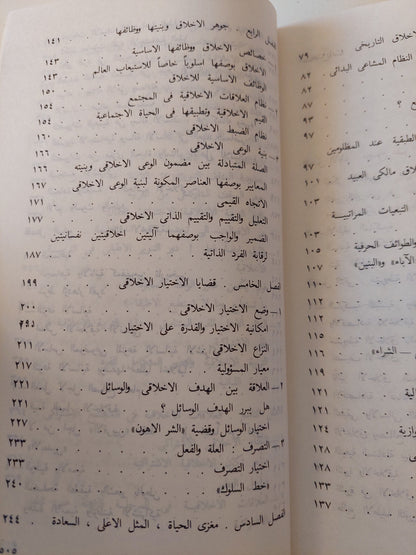 الفصل الرابع . جوهر الاخلاق وبنيتها ووظائفها . ١٤١
خصائص الاخلاق ووظائفها الاساسية . ١٤٣
الاخلاق بوصفها اسلوباً خاصاً للاستيعاب العالم ١٤٣
الوظائف الاساسية للاخلاق . . . ١٥٠
نظام العلاقات الاخلاقية في المجتمع . . ١٥٤
القيم الاخلاقية وتطبيقها في الحياة الاجتماعية ١٥٤
نظام الضبط الاخلاقى . . . ١٦٠
بنية الوعى الاخلاقى . . . ١٦٦
الصلة المتبادلة بين مضمون الوعى الاخلاقى وبنيته ١٦٦
المعايير بوصفها العناصر المكونة لبنية الوعى الاخلاقى ١٦٧
الاتجاه القيمى . . . ١٧١
التعليل والتقييم والتقييم الذاتى الاخلاقى . ١٧٧
الضمير والواجب بوصفهما آليتين اخلاقيتين نفسانيتين
لرقابة الفرد الذاتية . . . ١٨٧
الفصل الخامس . قضايا الاختيار الاخلاقى . . ١٩٩
١ — وضع الاختيار الاخلاقى . . . ٢٠٠
امكانية الاختيار والقدرة على الاختيار .
النزاع الاخلاقى . . . ٢١١
معيار المسؤولية . . . ٢١٧
٢ — العلاقة بين الهدف الاخلاقى والوسائل . ٢٢١
هل يبرر الهدف الوسائل ؟ . . ٢٢١
اختيار الوسائل وقضية «الشر الاهون» . ٢٢٧
٣ — التصرف : العلة والفعل . . . ٢٣٣
اختيار التصرف . . . ٢٣٣
«خط السلوك» . . . ٢٤٠
الفصل السادس . مغزى الحياة ، المثل الاعلى ، السعادة . ٢٤٤
٥٠٥
الاخلاق التاريخى ٧٩
النظام المشاعى البدائى . ٨٢
٨٢
٨٧
؟ . ٩٣
الطبقية عند المظلومين
٩٧
لاق مالكى العبيد ١٠١
. ١٠٣
التبعيات المراتبية
. ١٠٥
والطوائف الحرفية
الآباء» و«البنين» ١٠٧
. ١١٢
. ١١٢
— الشراء» ١١٦
. ١٢٠
. ١٢٣
. ١٢٨
. ١٢٨
. ١٣٢
. ١٣٧